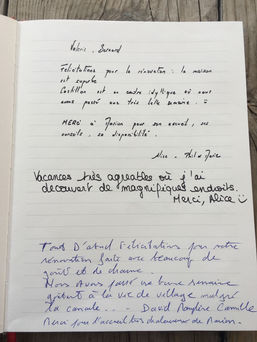 Valérie, Bernard
Félicitations pour la rénovation : la maison
est superbe
Castillon est un cadre idyllique où nous
avons passé une très belle semaine.
MERCI à Marion pour son accueil, ses
conseils, sa disponibilité.
Alice - Phil & Marie
Vacances très agréables où j'ai
découvert de magnifiques endroits.
Merci, Alice
Tout D'abord Félicitations pour votre
rénovation faite avec beaucoup de
goût et de charme.
Nous avons passé une bonne semaine
goûtant à la vie de village malgré
la canicule.... David Camille
Merci pour l'accueil très chaleureux de Marion.